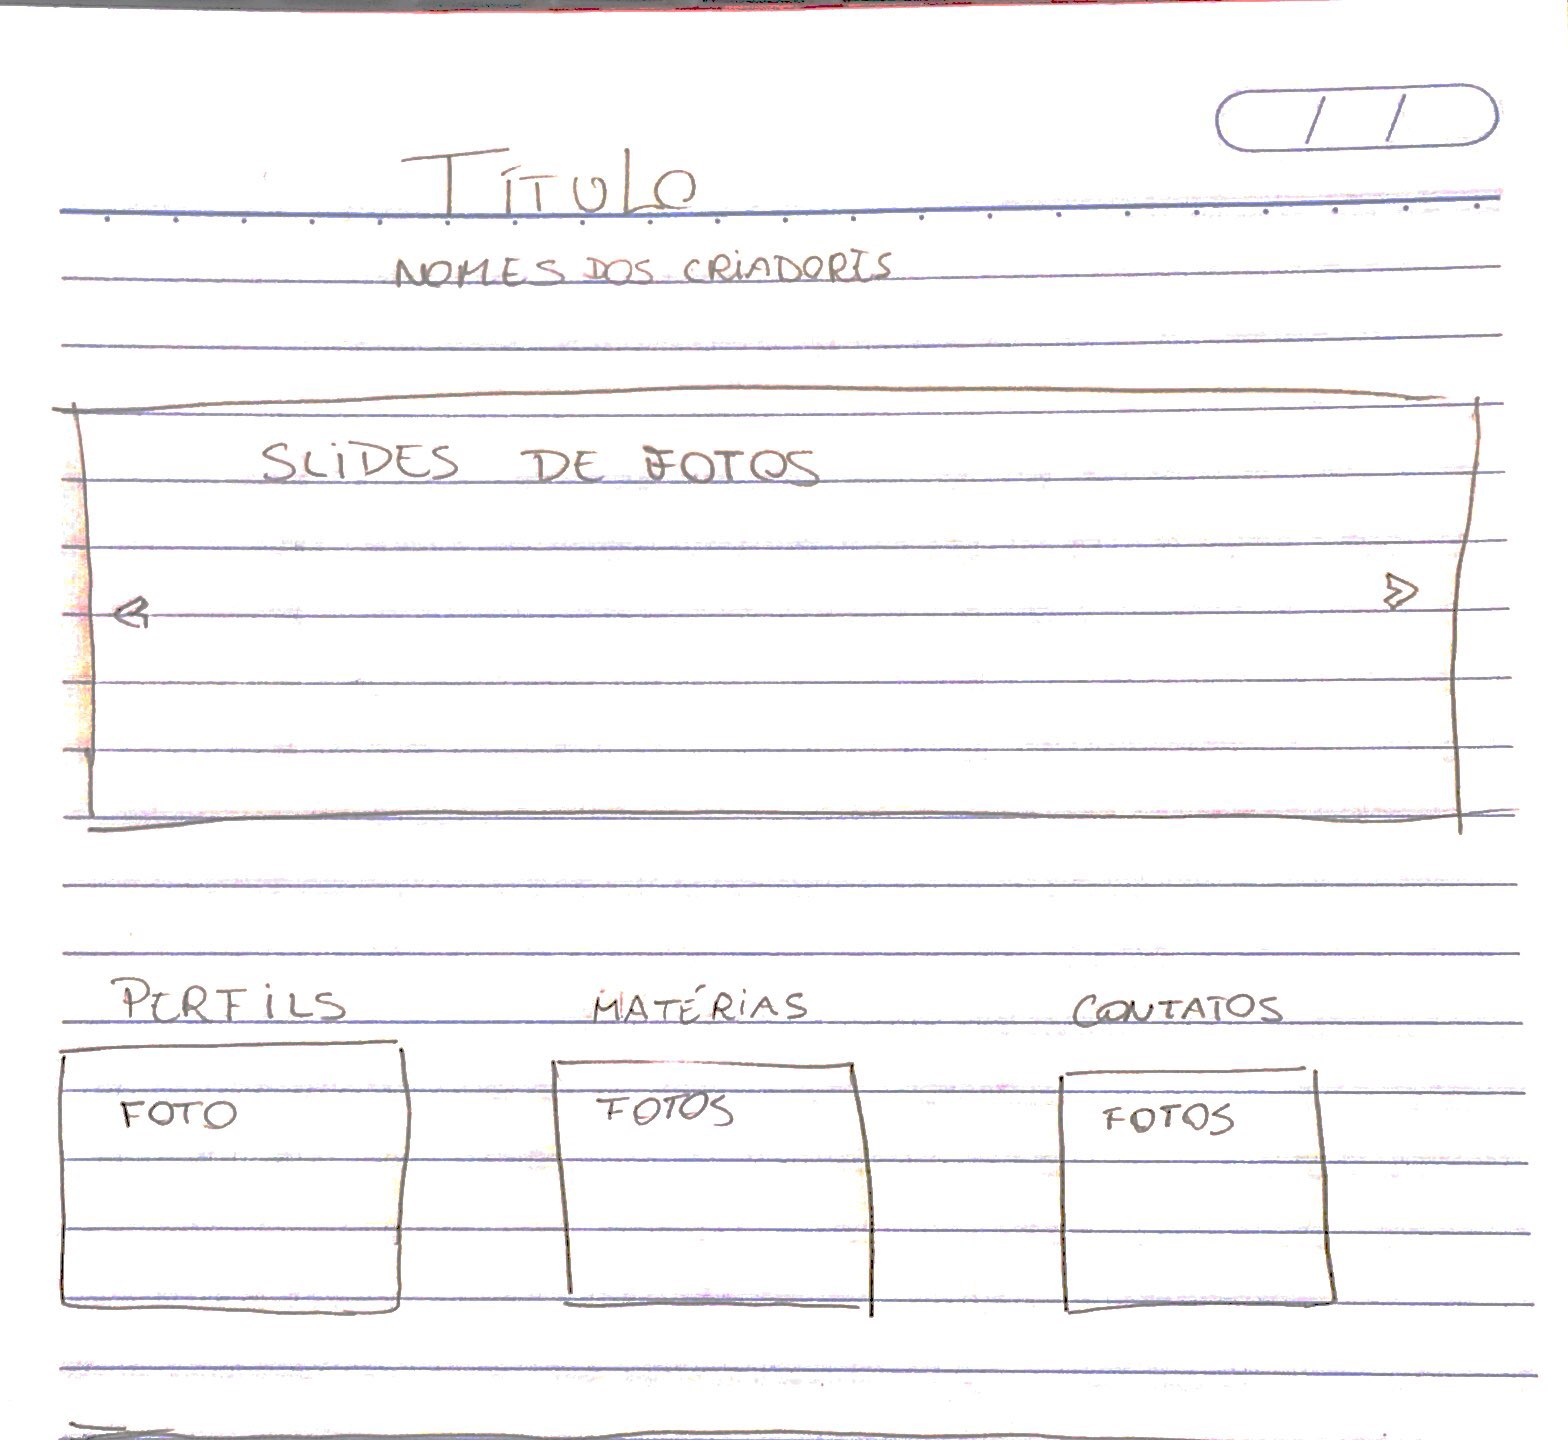 TÍTULO
NOMES DOS CRIADORES
SLIDES DE FOTOS
PERFILS MATÉRIAS CONTATOS
FOTO FOTOS FOTOS